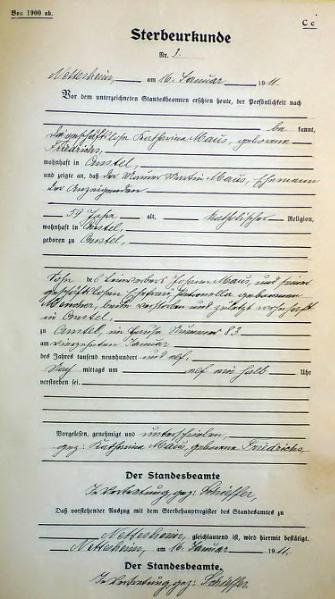 Bez. 1900 ab.
C c
Sterbeurkunde
Nr. 1.
Nettersheim, am 16. Januar 1911
Vor dem unterzeichneten Standesbeamten erschien heute, der Persönlichkeit nach
be kannt,
die geschäftslose Katharina Maus, geborene
Friedrichs,
wohnhaft in
und zeigte an, daß der Martin Maus, Ehemann
der Anzeigenden
59 Jahre alt, katholischer Religion,
wohnhaft in
geboren zu
Sohn des Johann Maus, und seiner
geschäftslosen Ehefrau Petronella geborenen
beide verstorben und zuletzt wohnhaft
in
zu in Hause Nummer 82
am vierzehnten Januar
des Jahres tausend neunhundert und elf,
mittags um elf ein halb Uhr
verstorben sei.
Vorgelesen, genehmigt und unterschrieben,
gez: Katharina Maus, geborene Friedrichs,
Der Standesbeamte
In Vertretung gez:
Daß vorstehender Auszug mit dem Sterbehauptregister des Standesamtes zu
Nettersheim, gleichlautend ist, wird hiermit bestätigt.
Nettersheim, am 16. Januar 1911.
Der Standesbeamte,
In Vertretung, gez: